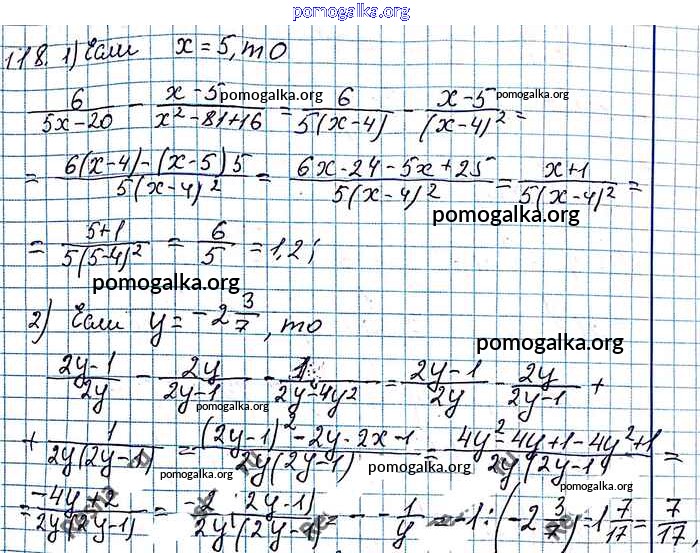 pomogalka.org
118. 1) Если x = 5, то
6/(5x-20) - (x-5)/(x²-81+16) = 6/(5(x-4)) - (x-5)/(x-4)² =
pomogalka.org pomogalka.org
= (6(x-4)-(x-5)5)/(5(x-4)²) = (6x-24-5x+25)/(5(x-4)²) = (x+1)/(5(x-4)²) =
pomogalka.org
= (5+1)/(5(5-4)²) = 6/5 = 1,2;
pomogalka.org
2) Если y = -2 3/7, то
pomogalka.org
(2y-1)/2y - 2y/(2y-1) - 1/(2y-4y²) = (2y-1)/2y - 2y/(2y-1) +
pomogalka.org pomogalka.org
+ 1/(2y(2y-1)) = ((2y-1)²-2y·2x-1)/(2y(2y-1)) = (4y²-4y+1-4y²+1)/(2y(2y-1)) =
pomogalka.org pomogalka.org pomogalka.org
= (-4y+2)/(2y(2y-1)) = (-2(2y-1))/(2y(2y-1)) = - -1/y = -1:(-2 3/7) = 1 7/17 = 7/17,